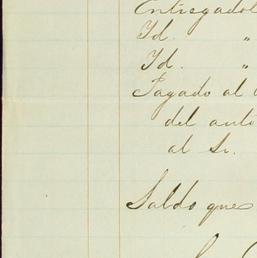 Entregado
Id. "
Id. "
Pagado al
del
al Sr.
Saldo que